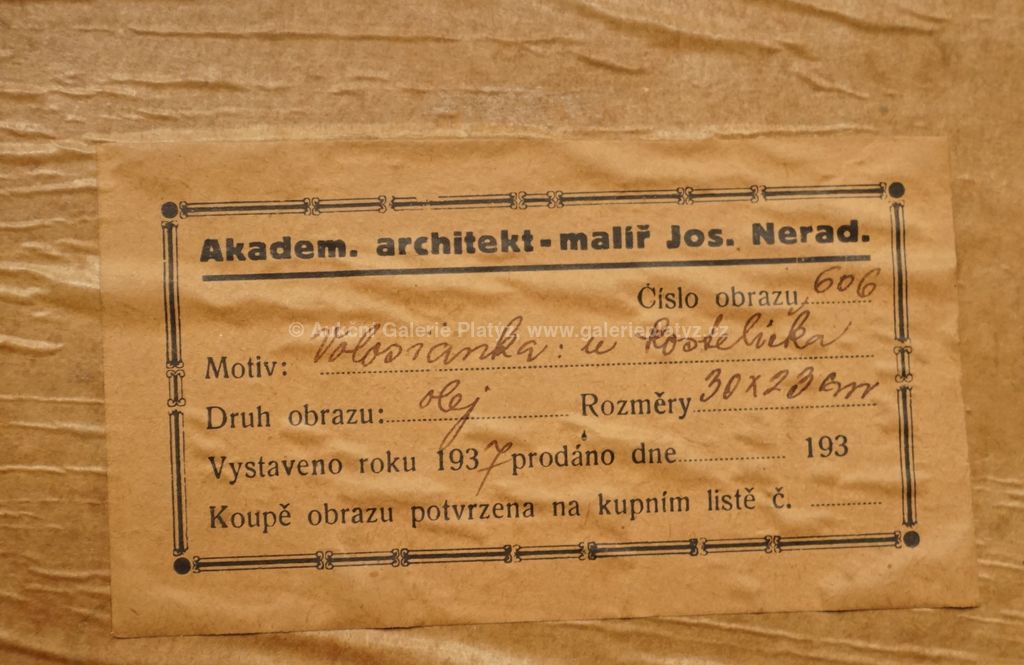 Akadem. architekt-malíř Jos. Nerad.
Číslo obrazu 606
© Aukční Galerie Platýz, www.galerieplatyz.cz
Motiv: Volosianka: u kostelíčka
Druh obrazu: olej Rozměry 30x23 cm
Vystaveno roku 1937 prodáno dne 193
Koupě obrazu potvrzena na kupním listě č.